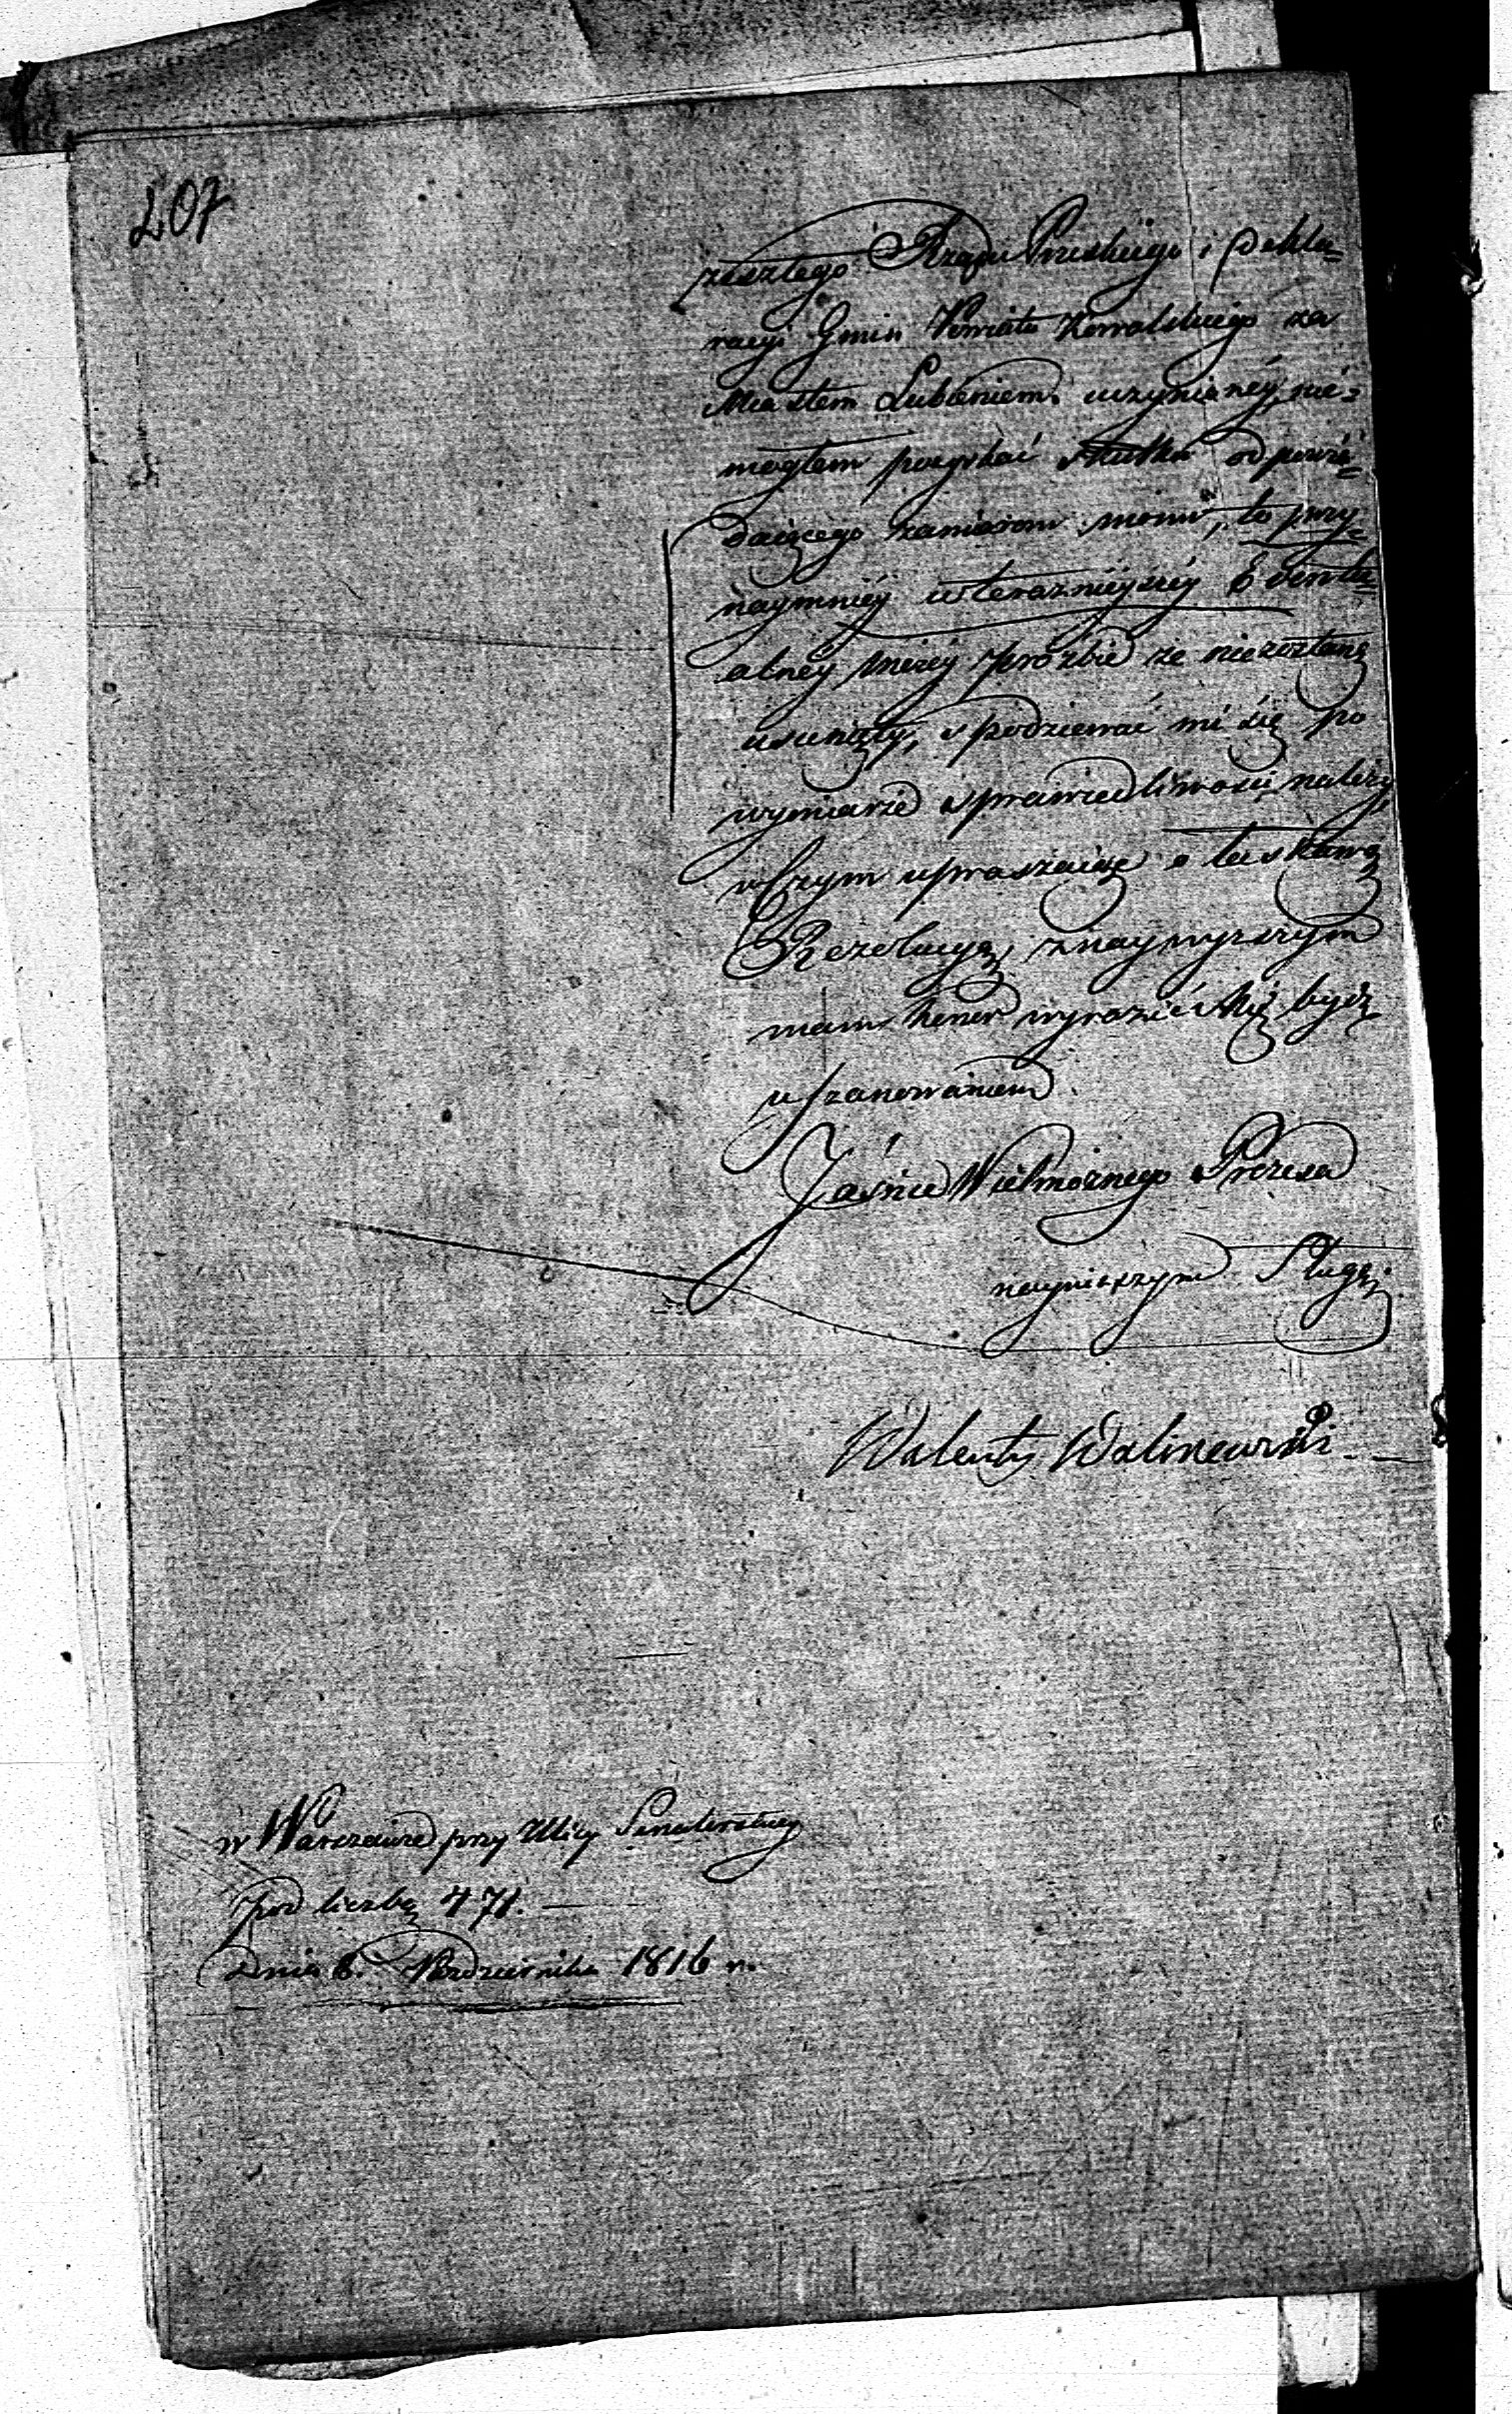 207
zeszłego Rządu Pruskiego i Dekla=
racyi Gmin Powiatu Kowalskiego za
Miastem Lubieniem uczynionéy, nie=
mogłem pozyskać skutku odpowia=
daiącego zamiarom moim, to przy=
naymniéy w terazniéyszéy Eventu=
alnéy Moiéy Prozbie ze niezostanę
usunięty, spodziewać mi się po
wymiarze sprawiedliwości należy
w Czym upraszaiąc o łaskawą
Rezolucyą, z naywyższym
mam honor wyrazić Mię bydź
uszanowaniem
Jaśnie Wielmożnego Prezesa
nayniższym Sługą
Walenty Walinowski
w Warszawie przy Ulicy Senatorskiey
pod liczbą 471.
Dnia 8. Pazdziernika 1816 r.